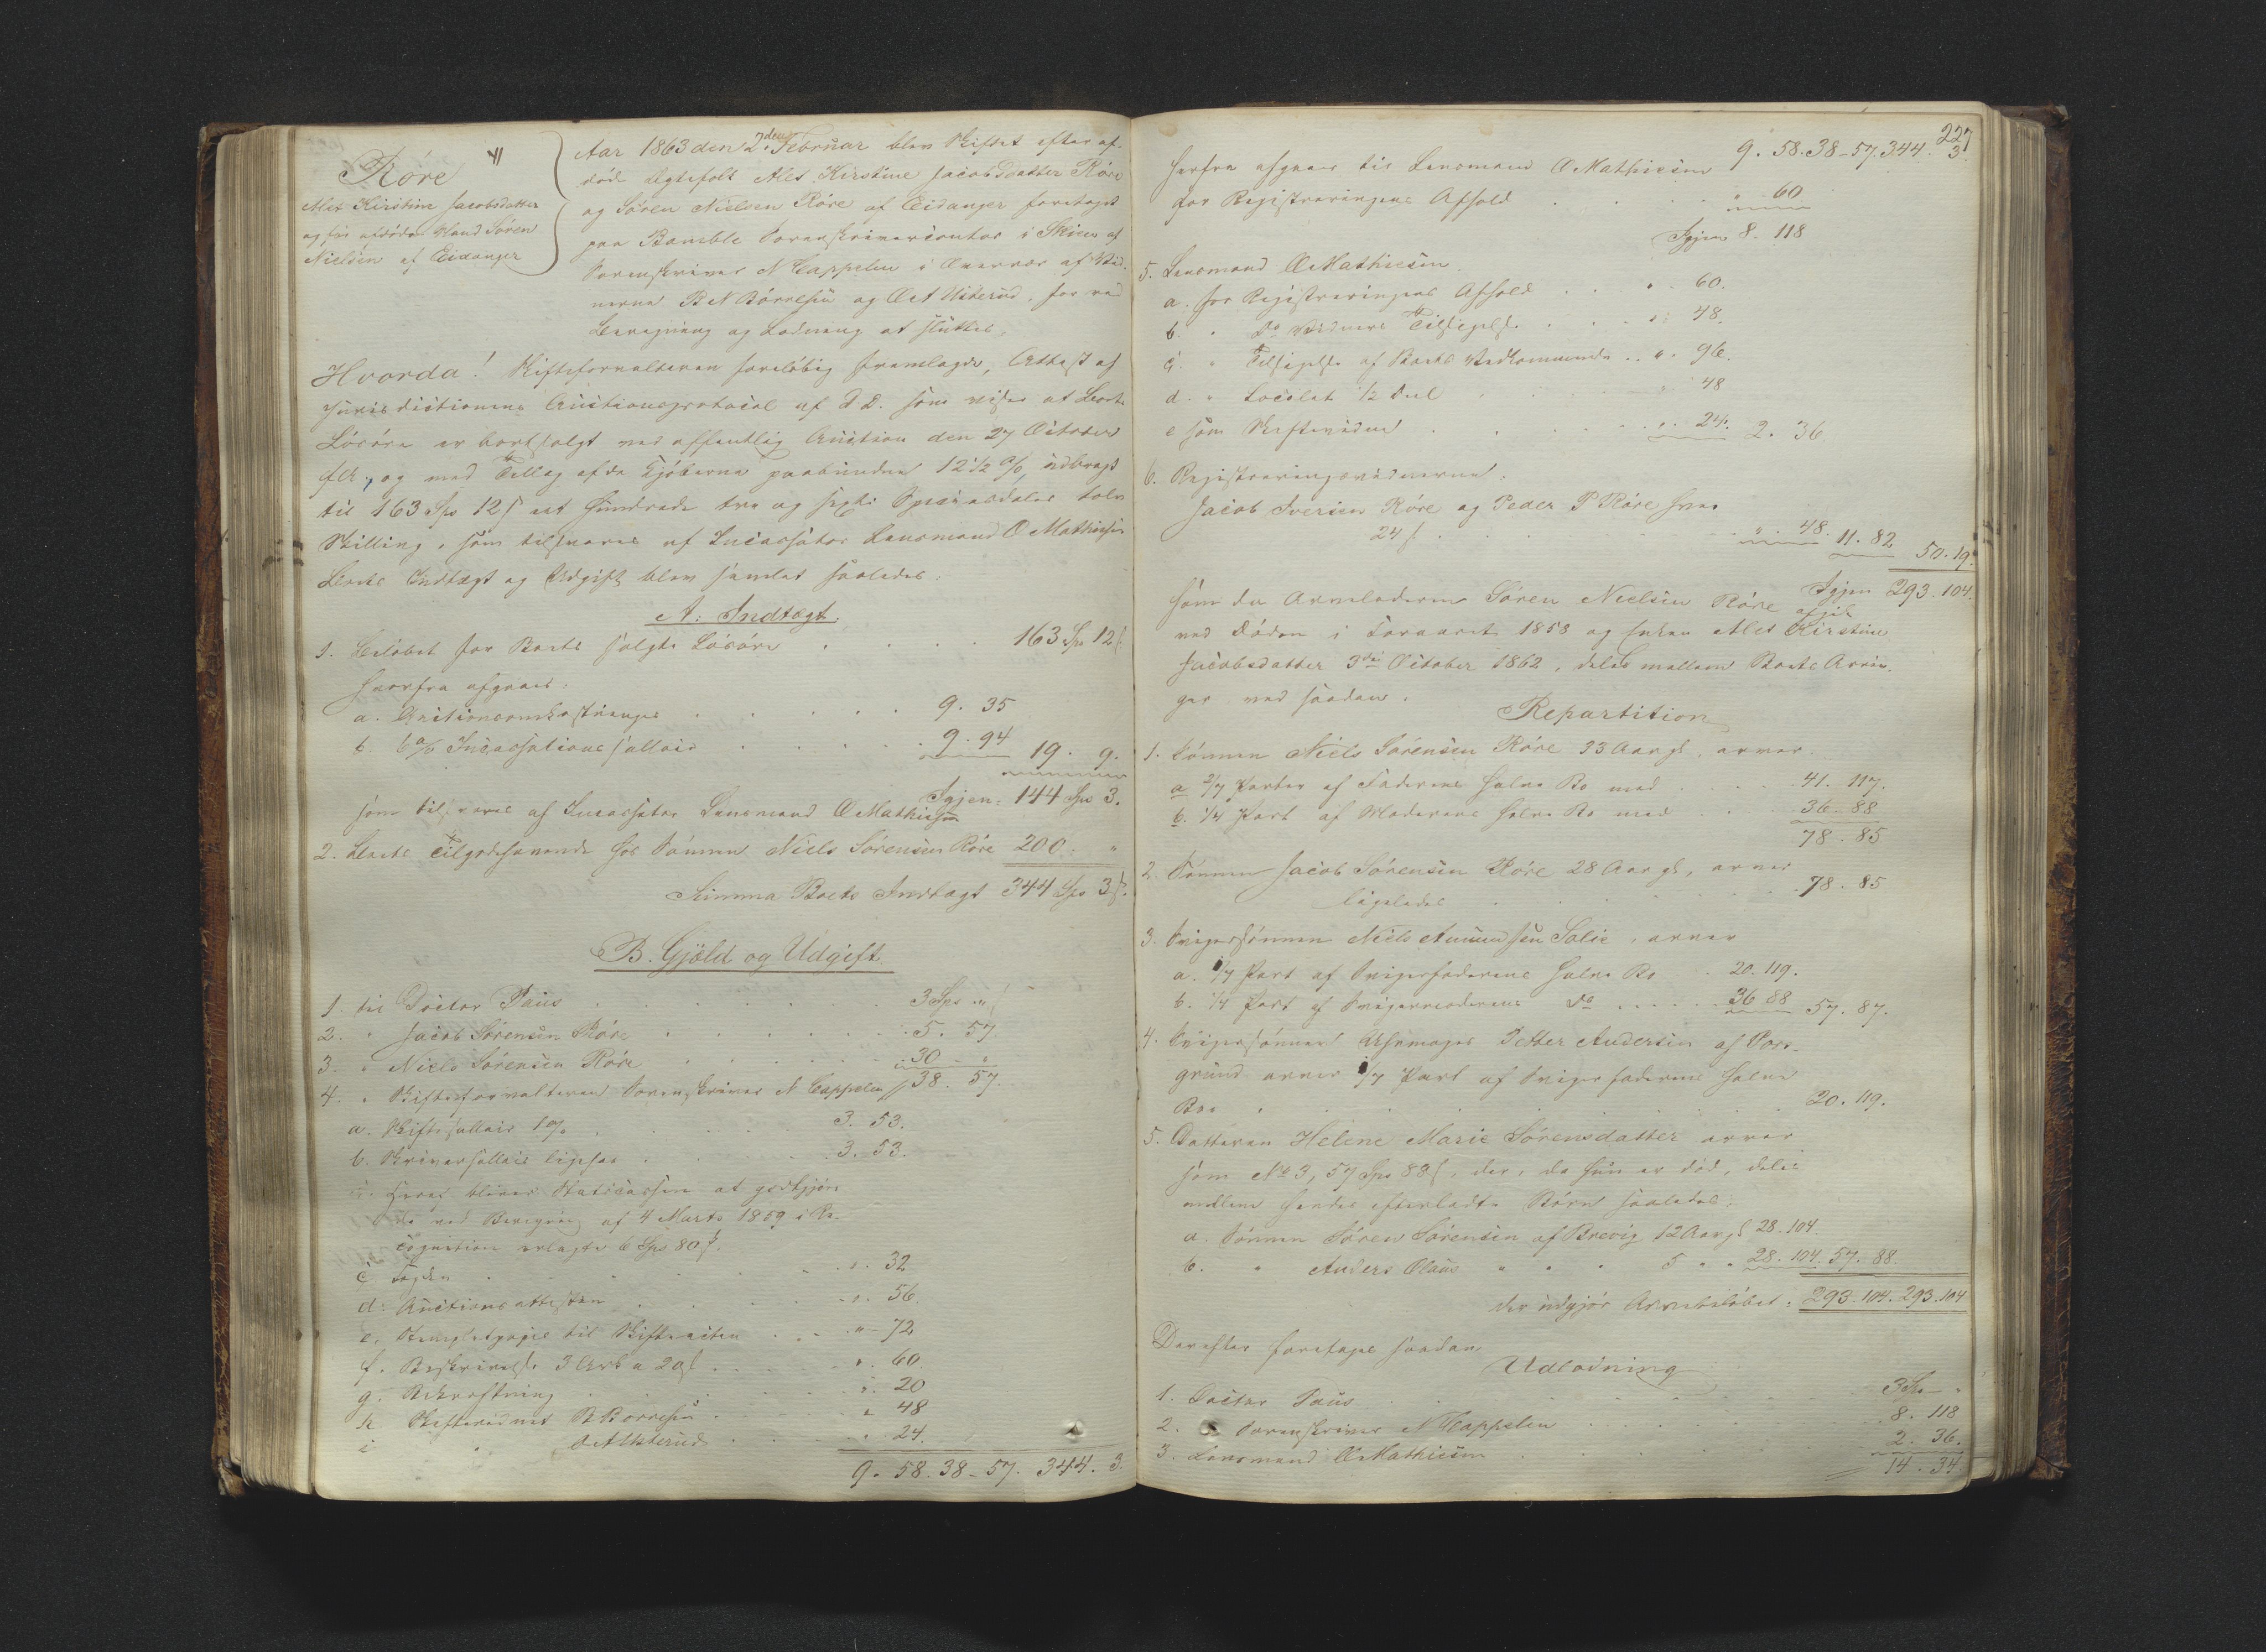 Røre
Alet Kirstine Jacobsdatter
og før afdøde Mand Søren
Nielsen af Eidanger
Aar 1863 den 2den Februar blev Skiftet efter af-
døde Ægtefolk Alet Kirstine Jacobsdatter Røre
og Søren Nielsen Røre af Eidanger foretaget
paa Bamble Sorenskrivercontor i Skien af
Sorenskriver N Cappelen i Overvær af Vid-
nerne B N Børresen og O A Usterud, for ved
Beregning og Lodning at sluttes.
Hvorda! Skifteforvalteren foreløbig fremlagde, Attest af
Jurisdictionens Auctionsprotocol af D. D. som viser at Boets
Løsøre er bortsolgt ved offentlig Auction den 27 October
f. A., og med Tillæg af de Kjøberne paabundne 12 1/2 %, udbragt
til 163 Spd 12 s et hundrede tre og sexti Speciesdaler tolv
Skilling, som tilsvares af Incassator Lensmand O Mathiesen
Boets Indtægt og Udgift blev samlet saaledes:
A. Indtægt.
1. Beløbet for Boets solgte Løsøre . . . . 163 Spd 12 s
herfra afgaaer:
a. Auctionsomkostninger . . . . . 9. 35
b. 6 % Incassations sallair . . . . 9. 94 19. 9.
Igjen: 144 Spd 3.
som tilsvares af Incassator Lensmand O Mathiesen
2. Boets Tilgodehavende hos Sønnen Niels Sørensen Røre 200. "
Summa Boets Indtægt 344 Spd 3 s.
B. Gjæld og Udgift
1. til Doctor Paus . . . . . . . 3 Spd " s
2. " Jacob Sørensen Røre . . . . . 5. 57
3. " Niels Sørensen Røre . . . . . 30 - "
4. " Skifteforvalteren Sorenskriver N Cappelen 38. 57.
a. Skiftesallair 1 % . . . . . 3. 53.
b. Skriversallair ligesaa . . . . 3. 53.
Heraf bliver Statscassen at godtgjøre
de ved Beregning af 4 Marts 1859 i Re-
cognition erlagte 6 Spd 80 s.
c . . . . . " 32
d. Auctionsattesten . . . . . " 56
e. Stemplet papir til Skifteacten . . . " 72
f. Beskrivelse 3 Ark a 20 s . . . . " 60
g. Bekræftning . . . . . " 20
h. Skiftevidnet B Børresen . . . . " 48
i " O A Usterud . . . . " 24.
9. 58. 38 - 57. 344. 3.
227
9. 58. 38 - 57. 344. 3.
herfra afgaaer til Lensmand O Mathiesen
for Registreringens Afhold . . . . " 60
Igjen 8. 118
5. Lensmand O Mathiesen
a. for Registreringens Afhold . . . " 60.
b. " Do Vidners Tilsigelse . . . " 48.
c. " Tilsigelse af Boets Vedkommende . . " 96.
d. " Localet 1/2 Deel . . . " 48
e som Skiftevidne . . . . " 24. 2. 36
6. Registreringsvidnerne:
Jacob Iversen Røre og Peder P Røre hver
24 s . . . . . . " 48. 11. 82 50. 19.
Igjen 293. 104.
som da Arveladeren Søren Nielsen Røre afgik
ved Døden i Foraaret 1858 og Enken Alet Kirstine
Jacobsdatter 3die October 1862, deles mellem Boets Arvin-
ger ved saadan.
Repartition
1. Sønnen Niels Sørensen Røre 33 Aar gl. arver
a 2/7 Parter af Faderens halve Bo med . . . 41. 117.
b. 1/4 Part af Moderens halve Bo med . . . 36. 88
78. 85
2. Sønnen Jacob Sørensen Røre 28 Aar gl, arver
ligeledes . . . . . . 78. 85
3. Svigersønnen Niels Amundsen Solie, arver
a. 1/7 Part af Svigerfaderens halve Bo . . 20. 119.
b. 1/4 Part af Svigermoderens Do . . . . 36 88 57. 87.
4. Svigersønnen Uhrmager Petter Andersen af Pors-
grund arver 1/7 Part af Svigerfaderens halve
Bo . . . . . . . . 20. 119.
5. Datteren Helene Marie Sørensdatter arver
som No 3, 57 Spd 88 s, der, da hun er død, deles
mellem hendes efterladte Børn saaledes:
a. Sønnen Søren Sørensen af Brevig 12 Aar gl 28. 104
b. " Anders Olaus " " " 5 " " 28. 104. 57. 88.
der udgjør Arvebeløbet: 293. 104. 293. 104
Derefter foretages saadan
Udlodning
1. Doctor Paus . . . . . 3 Spd - "
2. Sorenskriver N Cappelen . . . . . 8. 118
3. Lensmand O Mathiesen . . . . . 2. 36.
14. 34